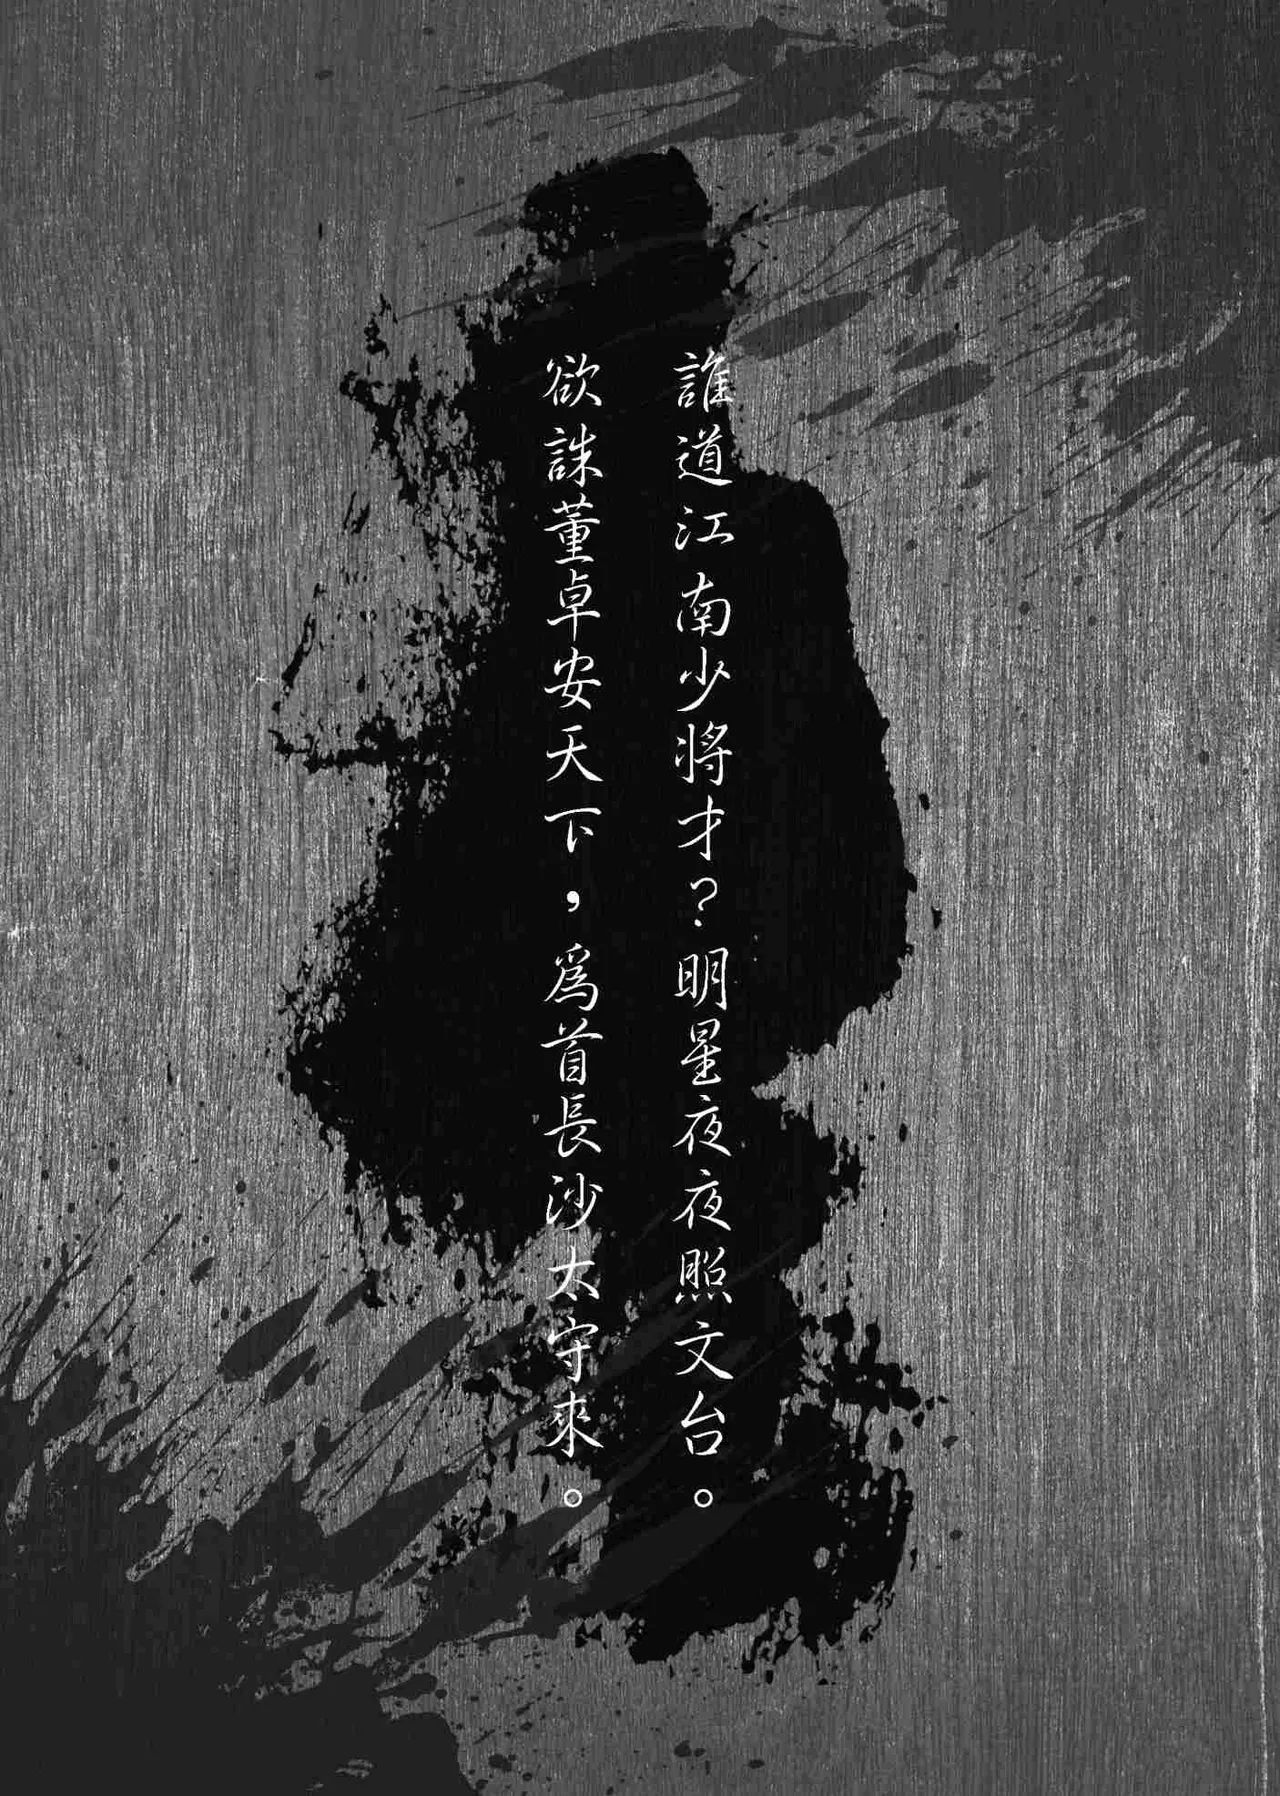 誰道江南少將才？明星夜夜照文台。
欲誅董卓安天下，為首長沙太守來。